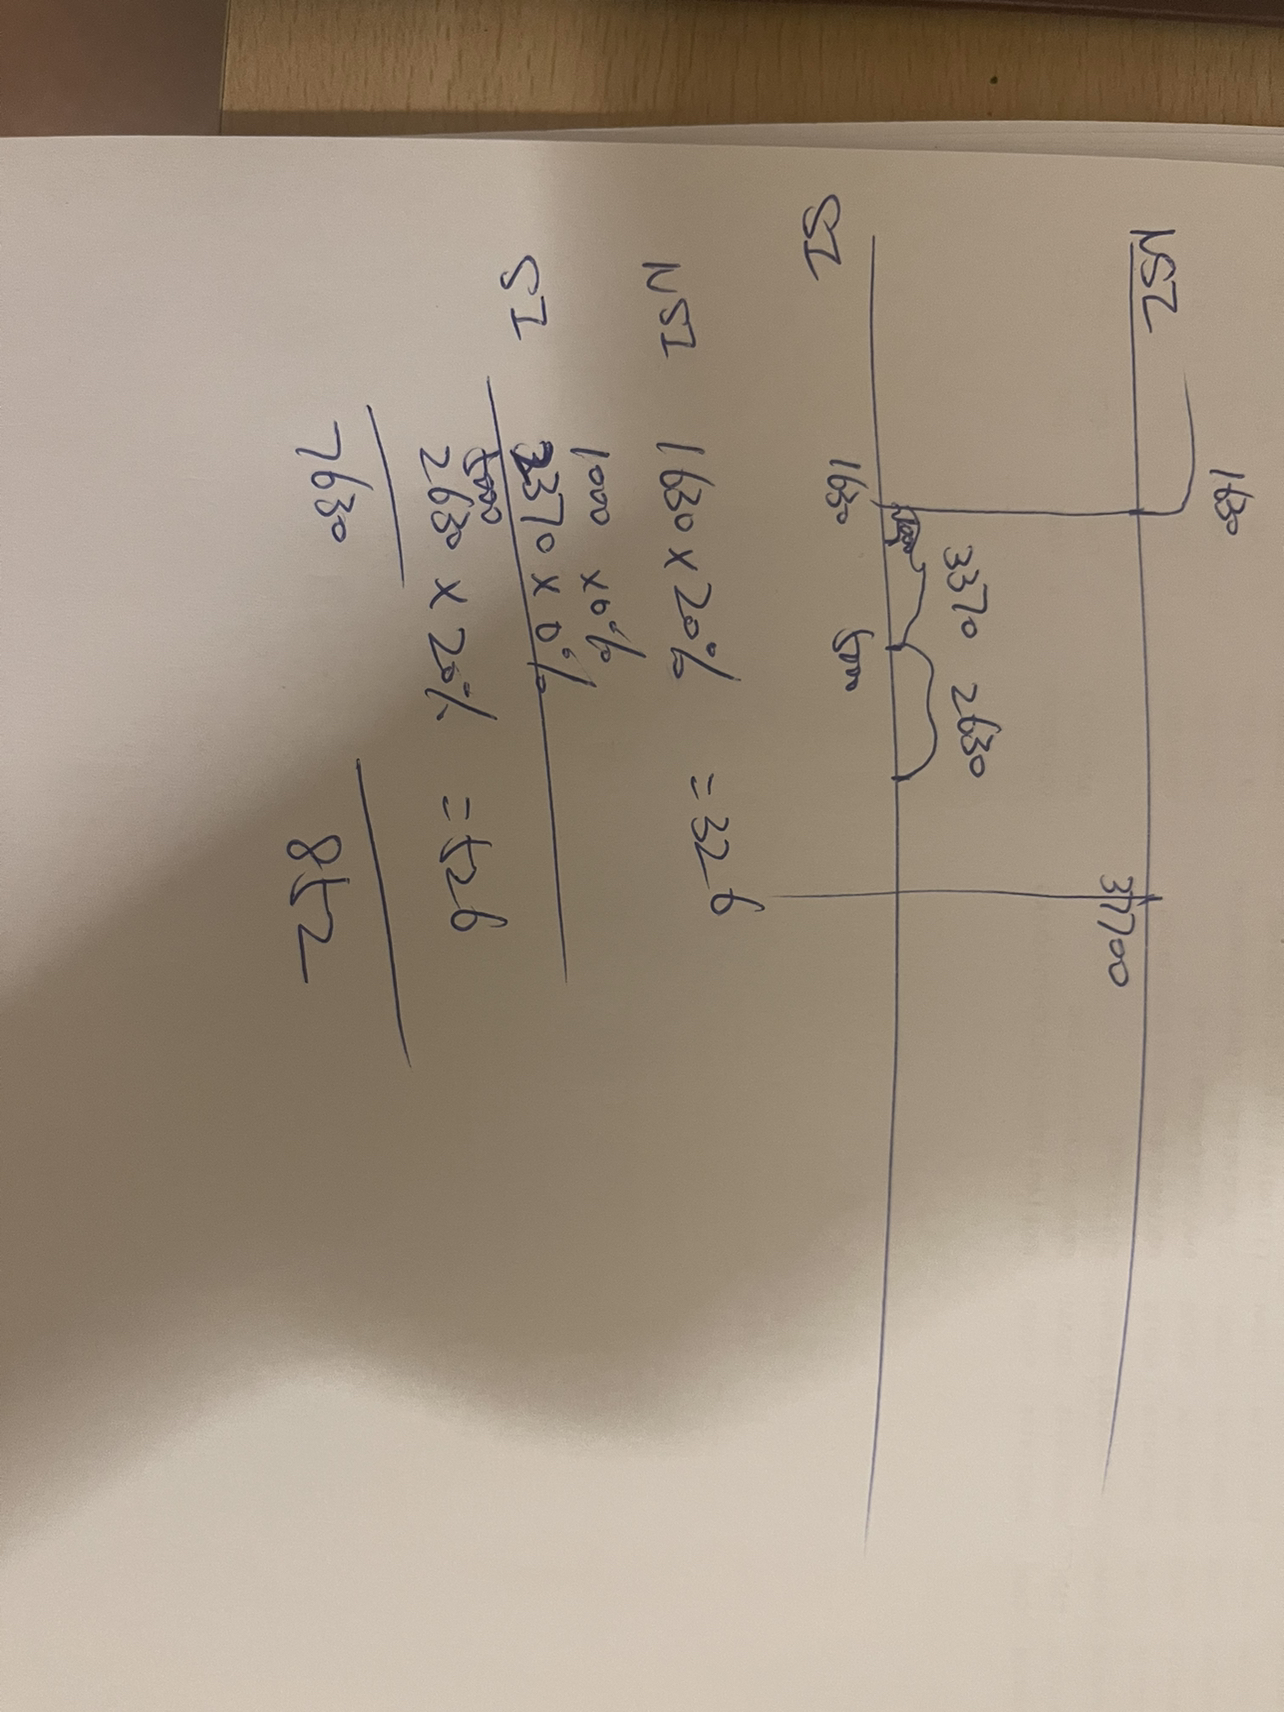 NSI 1630 37700
3370 2630
SI 1630 5000
NSI 1630 x 20% = 326
1000 x 0%
SI 3370 x 0%
5000
2630 x 20% = 526
7630 852